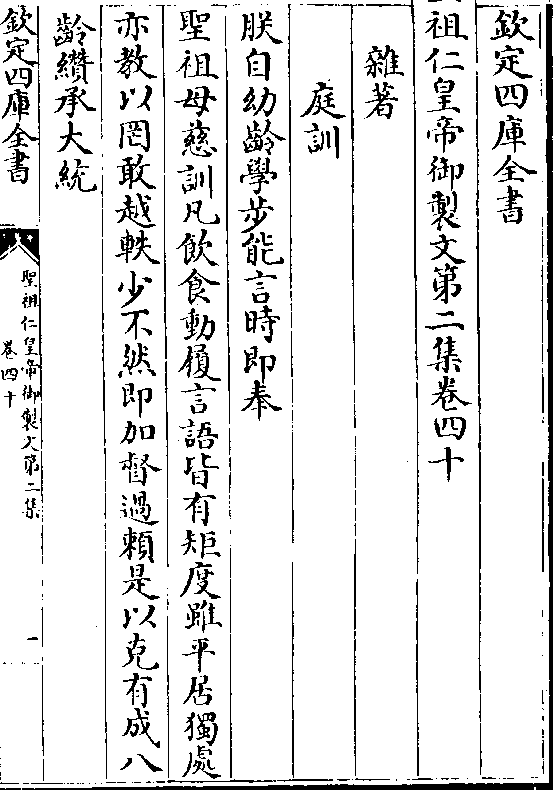 欽定四庫全書
祖仁皇帝御製文第二集卷四十
雜著
庭訓
朕自幼齡學步能言時即奉
聖祖母慈訓凡飲食動履言語皆有矩度雖平居獨處
亦教以罔敢越軼少不然即加督過賴是以克有成八
齡纘承大統
欽定四庫全書
聖祖仁皇帝御製文第二集
卷四十
一